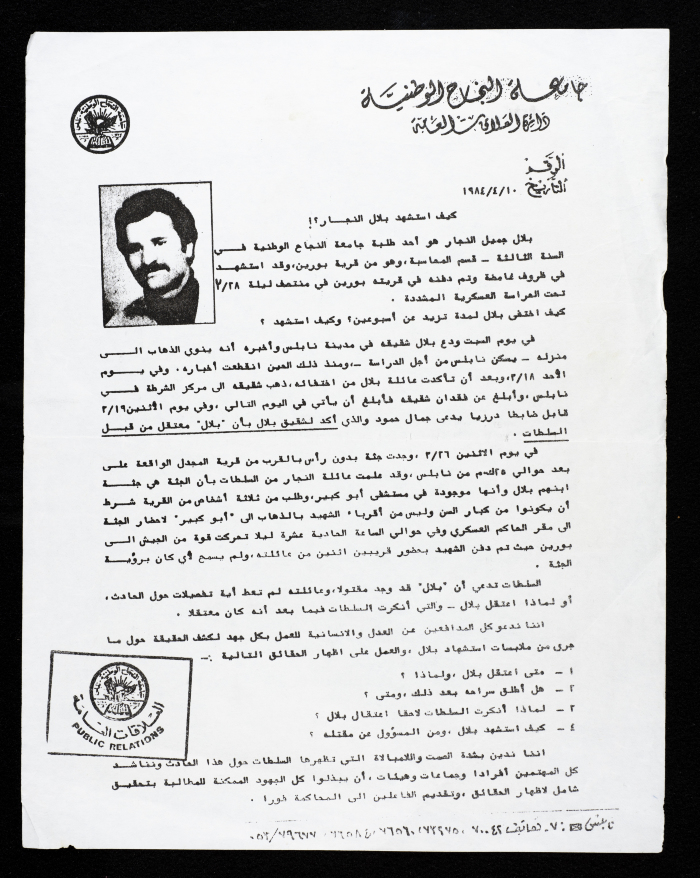 جامعة النجاح الوطنية
دائرة العلاقات العامة
الرقم
التاريخ ١٩٨٤/٤/١٠
كيف استشهد بلال النجار؟!
بلال جميل النجار هو أحد طلبة جامعة النجاح الوطنية فــي
السنة الثالثة – قسم المحاسبة،وهو من قرية بورين،وقد استشهـد
في ظروف غامضة وتم دفنه في قريته بورين في منتصف ليلة ٣/٢٨
تحت الحراسة العسكرية المشددة .
كيف اختفى بلال لمدة تزيد عن أسبوعين؟ وكيف استشهد ؟
في يوم السبت ودع بلال شقيقه في مدينة نابلس وأخبره أنه ينوي الذهاب الــى
منزله – يسكن نابلس من أجل الدراسة –،ومنذ ذلك الحين انقطعت أخباره. وفي يــوم
الأحد ٣/١٨، وبعد أن تأكدت عائلة بلال من اختفائه،ذهب شقيقه الى مركز الشرطة فــي
نابلس،وأبلغ عن فقدان شقيقه فأبلغ أن يأتي في اليوم التالي ،وفي يوم الأثنين ٣/١٩
قابل ضابطا درزيا يدعى جمال حمود والذي أكد لشقيق بلال بأن "بلال" معتقل من قبـل
السلطات .
في يوم الاثنين ٣/٢٦ ،وجدت جثة بدون رأس بالقرب من قرية المجدل الواقعة علـى
بعد حوالي ٢٥ك.م من نابلس ،وقد علمت عائلة النجار من السلطات بأن الجثة هي جثـة
ابنهم بلال وأنها موجودة في مستشفى أبو كبير،وطلب من ثلاثة أشخاص من القرية شـرط
أن يكونوا من كبار السن وليس من أقرباء الشهيد بالذهاب الى "أبو كبير" لاحضار الجثة
الى مقر الحاكم العسكري وفي حوالي الساعة الحادية عشرة ليلا تحركت قوة من الجيش الـى
بورين حيث تم دفن الشهيد بحضور قريبين اثنين من عائلته،ولم يسمح لأي كان برؤيـة
الجثة .
السلطات تدعي أن "بلال" قد وجد مقتولا،وعائلته لم تعط أية تفصيلات حول الحادث،
أو لماذا اعتقل بلال – والتي أنكرت السلطات فيما بعد أنه كان معتقلا .
اننا ندعو كل المدافعين عن العدل والانسانية للعمل بكل جهد لكشف الحقيقة حول مـا
جرى من ملابسات استشهاد بلال ،والعمل على اظهار الحقائق التالية :ــ
١ – متى اعتقل بلال ،ولماذا ؟
٢ – هل أطلق سراحه بعد ذلك ،ومتى ؟
٣ – لماذا أنكرت السلطات لاحقا اعتقال بلال ؟
٤ – كيف استشهد بلال ،ومن المسؤول عن مقتله ؟
اننا ندين بشدة الصمت واللامبالاة التي تظهرها السلطات حول هذا الحادث ونناشـد
كل المهتمين أفرادا وجماعات وهيئات ،أن يبذلوا كل الجهود الممكنة للمطالبة بتحقيق
شامل لاظهار الحقائق ،وتقديم الفاعلين الى المحاكمة فورا .
العلاقات العامة
PUBLIC RELATIONS
نابلس ✉ ٧٠٧